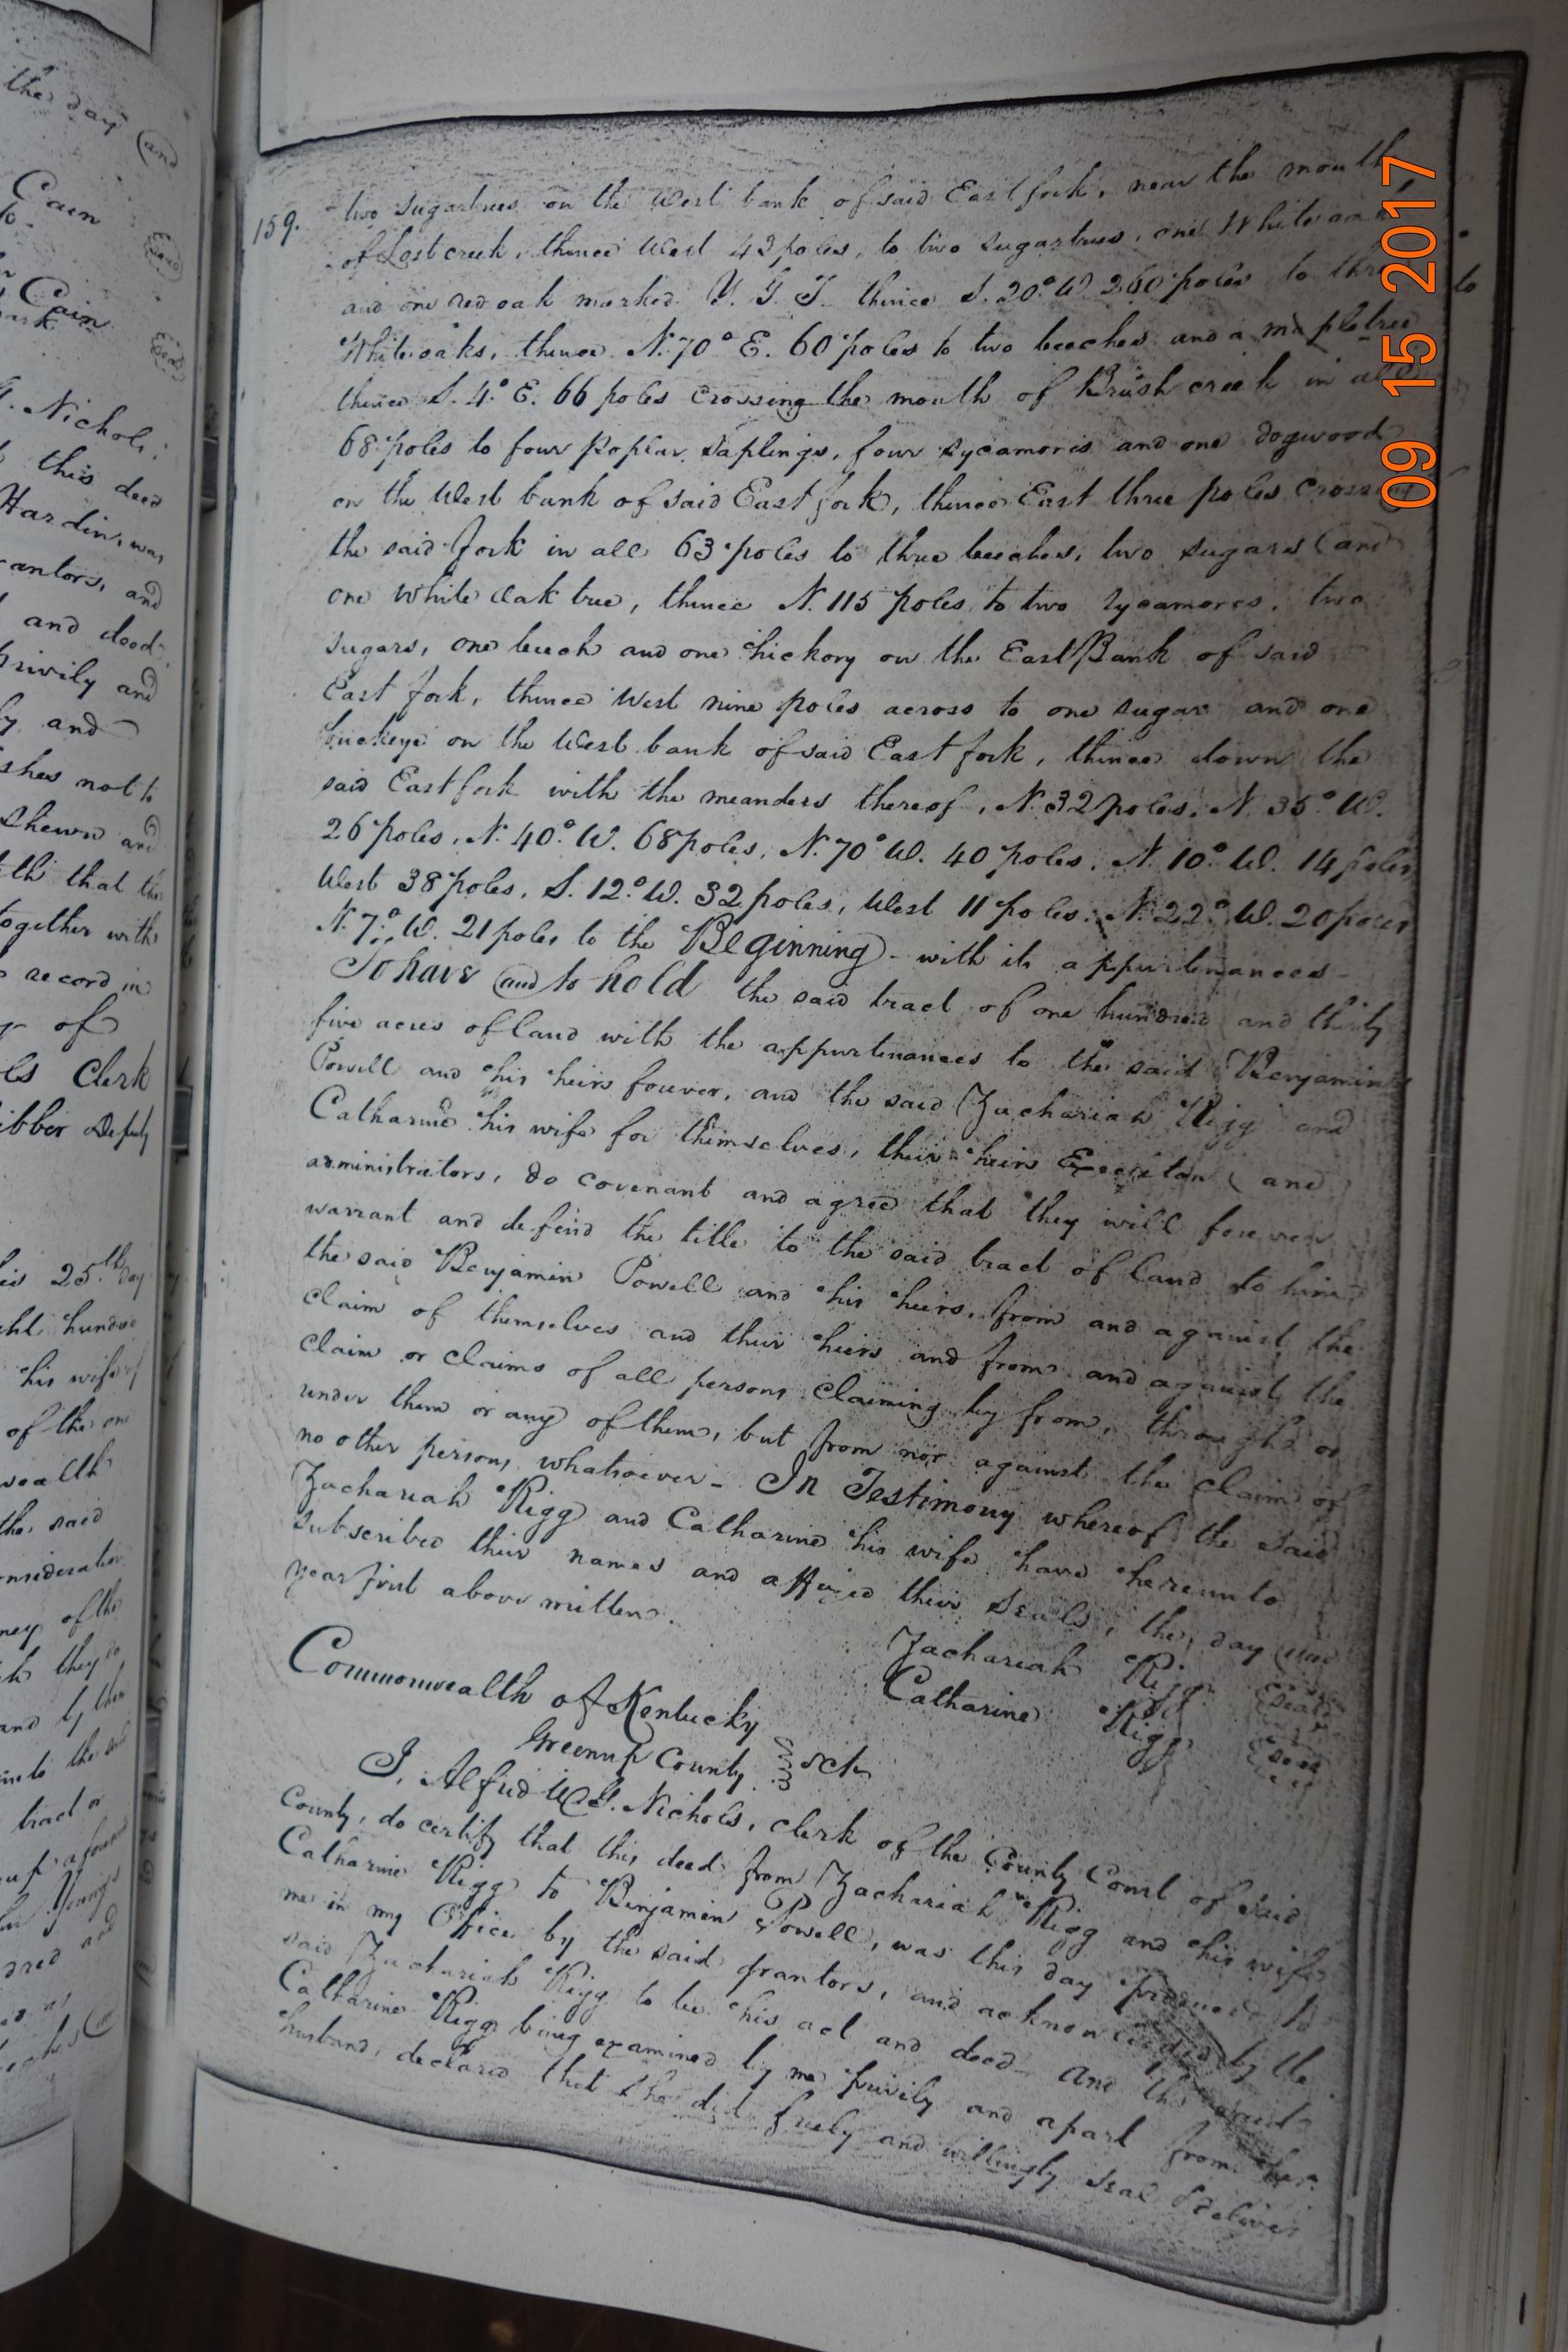 the day and
Cain Seal
Cain Seal
mark
G. Nichols
this deed
Hardin, was
grantors, and
and deed
privily and
and
wishes not to
Shewn and
with that the
together with
record in
of
Clerk
Kibber Deputy
25th day
eight hundred
his wife of
of the one
the said
consideration
money of the
they do
and by them
unto the said
tract or
and
159.
two sugartrees on the West bank of said East fork, near the mouth
of Lost creek, thence West 42 poles, to two sugartrees, one White oak
and one red oak marked thence S. 20° W 260 poles to three
White oaks, thence N. 70° E. 60 poles to two beeches and a mapletree
thence S. 4° E. 66 poles crossing the mouth of Brush creek in all
68 poles to four Poplar Saplings, four sycamores and one dogwood
on the West bank of said East fork, thence East three poles crossing
the said fork in all 63 poles to three beeches, two sugars and
one white oak tree, thence N. 115 poles to two sycamores, two
sugars, one beech and one hickory on the East Bank of said
East fork, thence West nine poles across to one sugar and one
buckeye on the West bank of said East fork, thence down the
said East fork with the meanders thereof, N. 32 poles, N. 35° W.
26 poles, N. 40° W. 68 poles, N. 70° W. 40 poles, N. 10° W. 14 poles
West 38 poles, S. 12° W. 32 poles, West 11 poles, N. 22° W. 20 poles
N. 7° W. 21 poles to the Beginning - with its appurtenances -
To have and to hold the said tract of one hundred and thirty
five acres of land with the appurtenances to the said Benjamin
Powell and his heirs forever, and the said Zachariah Rigg and
Catharine his wife for themselves, their heirs Executors and
administrators, do covenant and agree that they will forever
warrant and defend the title to the said tract of land to him
the said Benjamin Powell and his heirs, from and against the
claim of themselves and their heirs and from and against the
claim or claims of all persons claiming by from, through or
under them or any of them, but from nor against the claim of
no other persons whatsoever - In Testimony whereof the said
Zachariah Rigg and Catharine his wife have hereunto
subscribed their names and affixed their Seals, the day and
year first above written.
Zachariah Rigg Seal
Catharine Rigg Seal
Commonwealth of Kentucky
Greenup County sct
I, Alfred W. G. Nichols, clerk of the County Court of said
County, do certify that this deed from Zachariah Rigg and his wife
Catharine Rigg to Benjamin Powell, was this day produced to
me in my Office by the said grantors, and acknowledged by the
said Zachariah Rigg to be his act and deed - And the said
Catharine Rigg being examined by me privily and apart from her
husband, declared that she did freely and willingly seal & deliver
09 15 2017
to